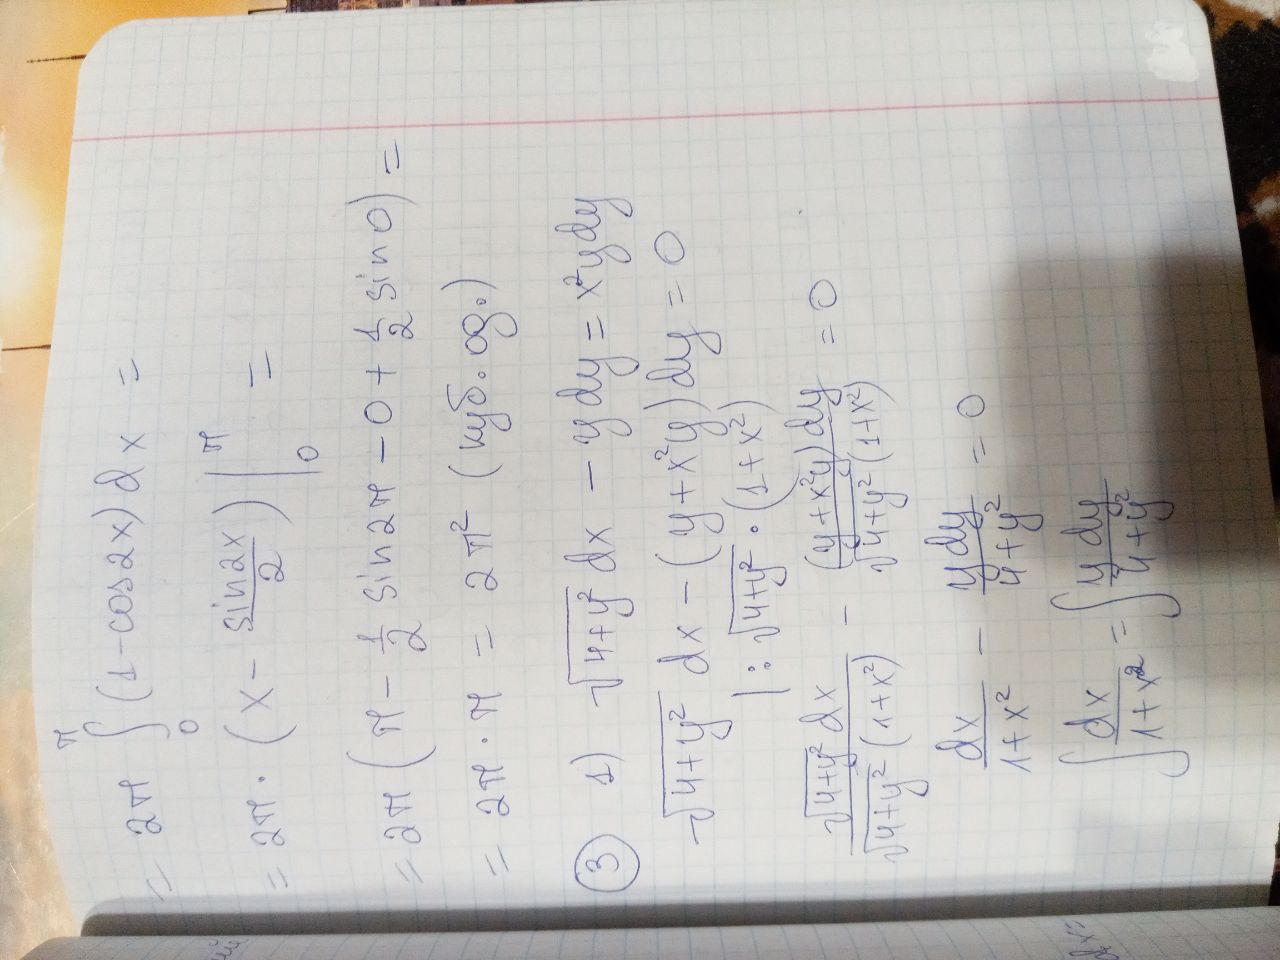 = 2π ∫₀^π (1-cos2x) dx =
= 2π · (x - sin2x/2) |₀^π =
= 2π (π - 1/2 sin2π - 0 + 1/2 sin0) =
= 2π · π = 2π² (куб. од.)
③ 1) √(4+y²) dx - y dy = x²y dy
√(4+y²) dx - (y+x²y) dy = 0
| : √(4+y²) · (1+x²)
√(4+y²) dx / (√(4+y²) (1+x²)) - (y+x²y) dy / (√(4+y²) (1+x²)) = 0
dx / (1+x²) - y dy / (4+y²) = 0
∫ dx / (1+x²) = ∫ y dy / (4+y²)
dx=